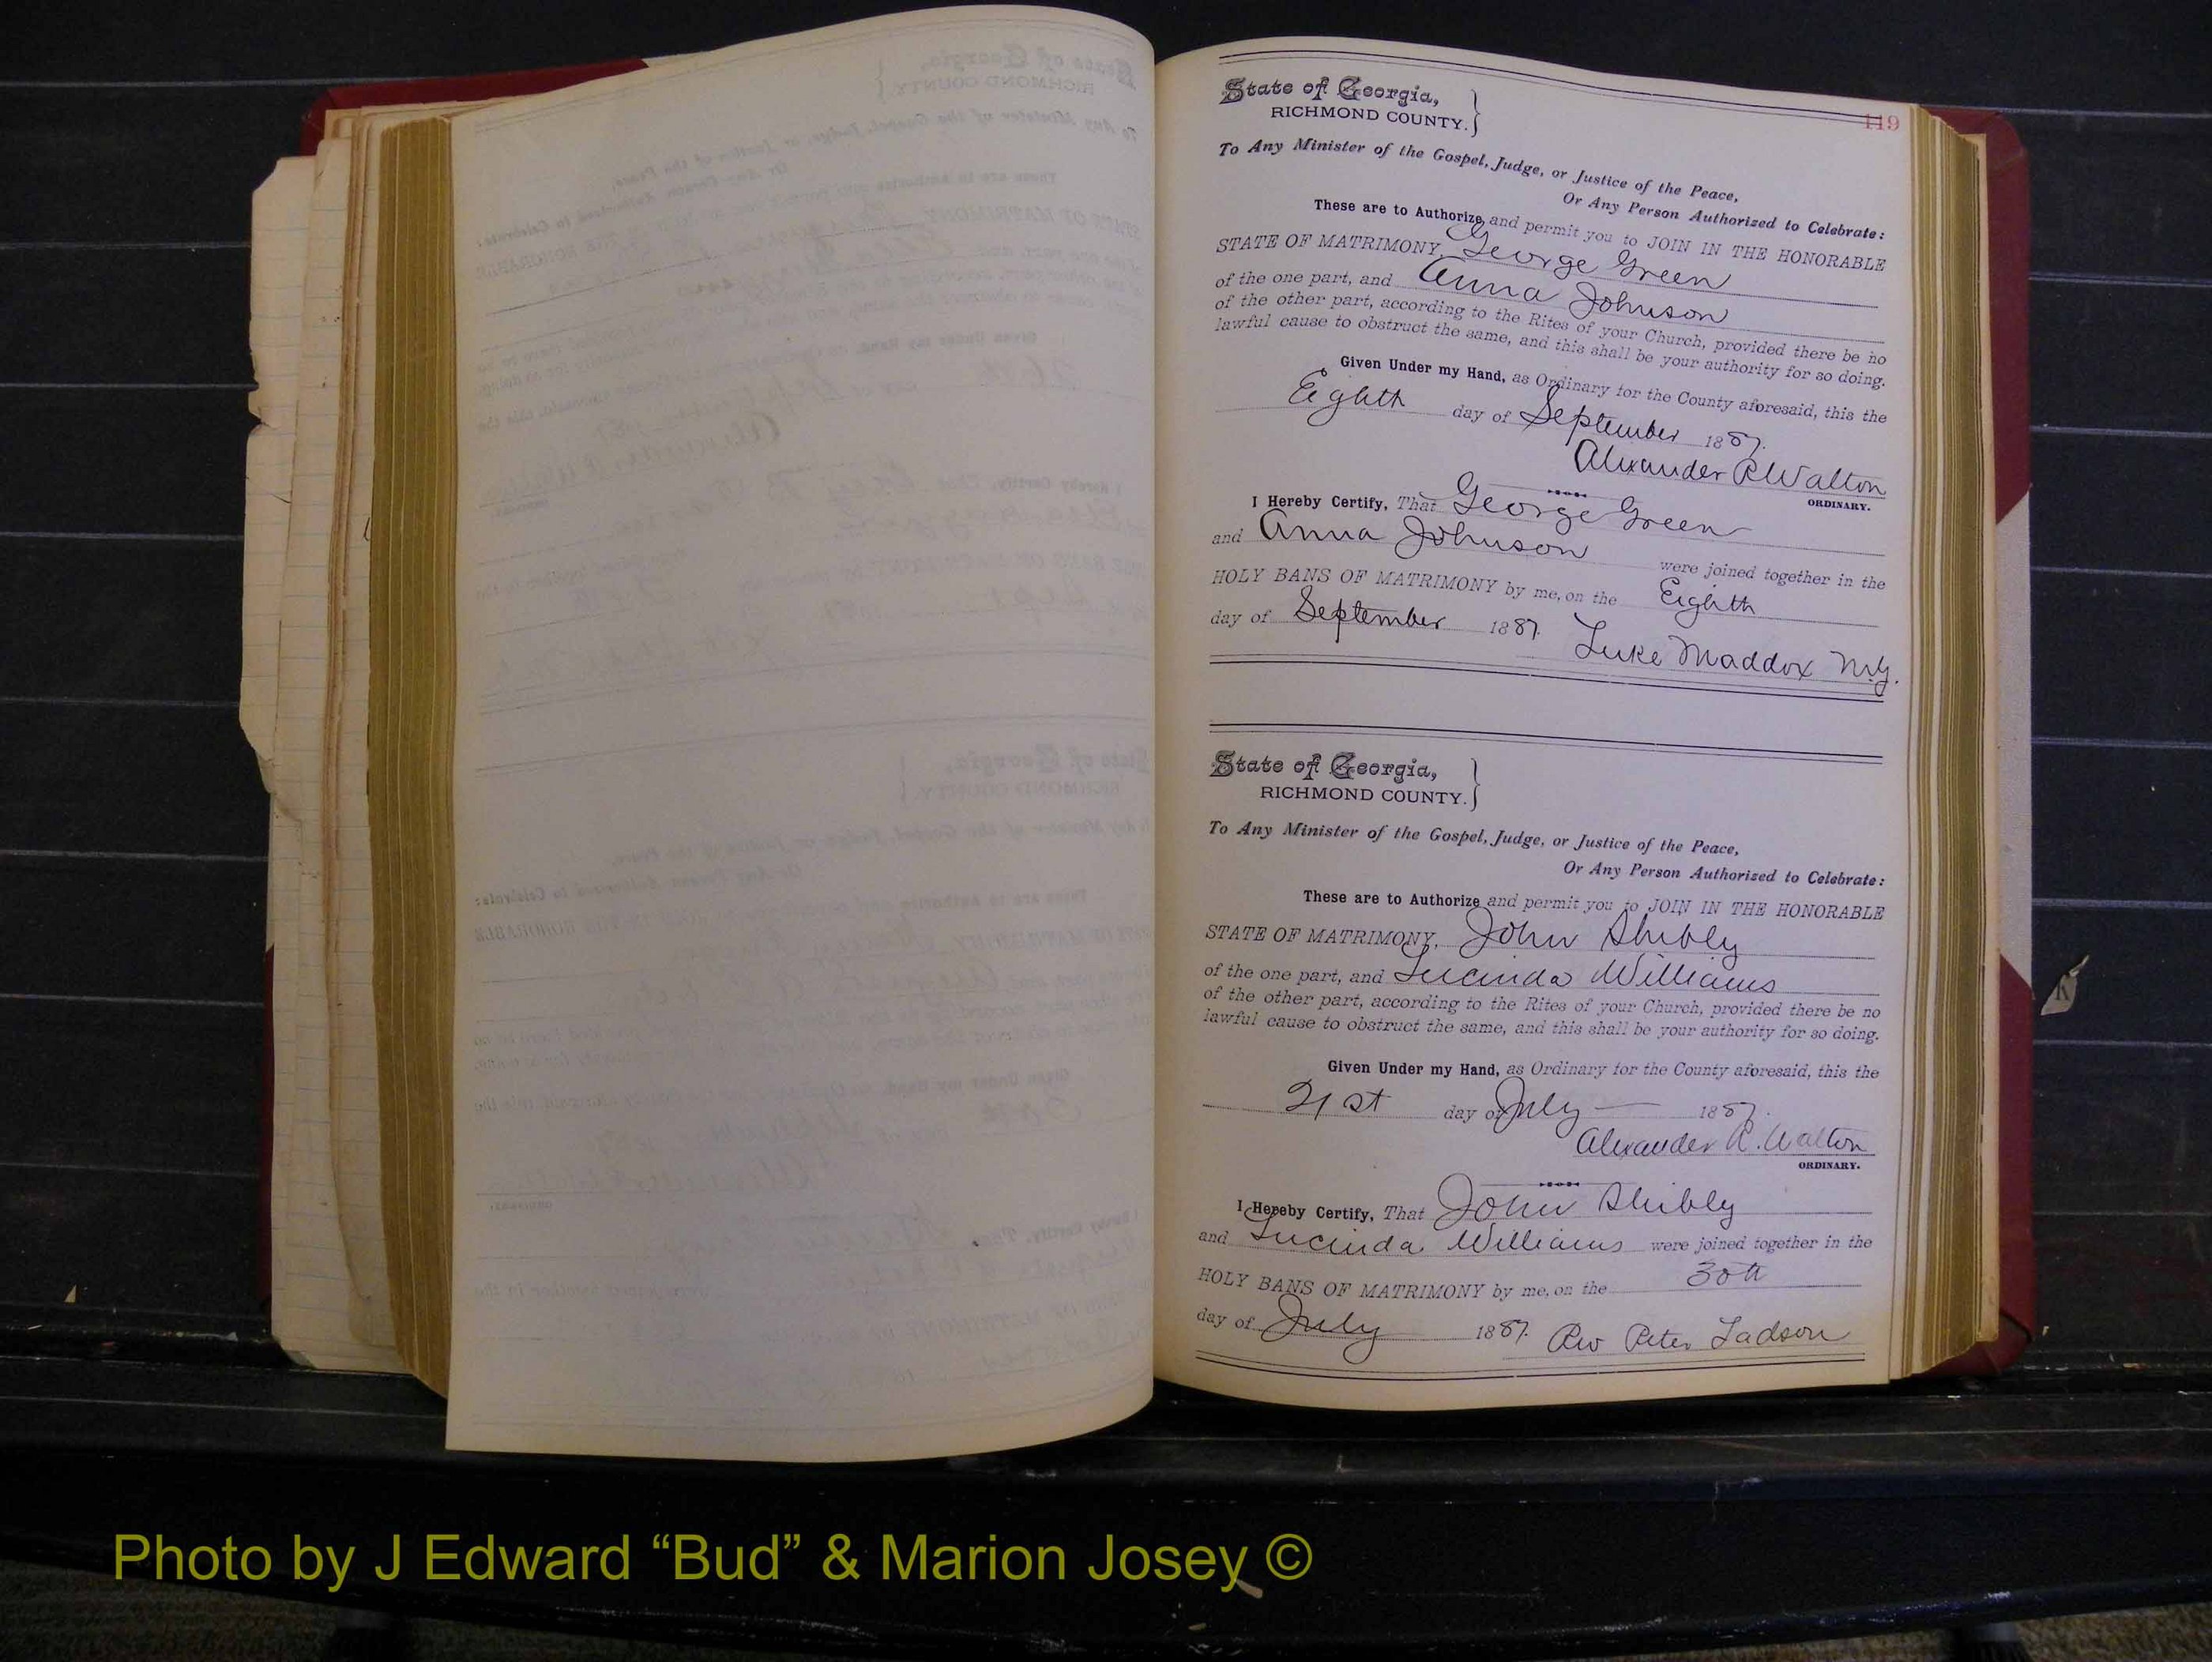 119
State of Georgia,
RICHMOND COUNTY.
To Any Minister of the Gospel, Judge, or Justice of the Peace,
Or Any Person Authorized to Celebrate:
These are to Authorize and permit you to JOIN IN THE HONORABLE
STATE OF MATRIMONY, George Green
of the one part, and Anna Johnson
of the other part, according to the Rites of your Church, provided there be no
lawful cause to obstruct the same, and this shall be your authority for so doing.
Given Under my Hand, as Ordinary for the County aforesaid, this the
Eighth day of September 1887.
Alexander R Walton
ORDINARY.
I Hereby Certify, That George Green
and Anna Johnson were joined together in the
HOLY BANS OF MATRIMONY by me, on the Eighth
day of September 1887. Luke Maddox M.G.
State of Georgia,
RICHMOND COUNTY.
To Any Minister of the Gospel, Judge, or Justice of the Peace,
Or Any Person Authorized to Celebrate:
These are to Authorize and permit you to JOIN IN THE HONORABLE
STATE OF MATRIMONY, John Shibly
of the one part, and Lucinda Williams
of the other part, according to the Rites of your Church, provided there be no
lawful cause to obstruct the same, and this shall be your authority for so doing.
Given Under my Hand, as Ordinary for the County aforesaid, this the
21st day of July 1887.
Alexander R. Walton
ORDINARY.
I Hereby Certify, That John Shibly
and Lucinda Williams were joined together in the
HOLY BANS OF MATRIMONY by me, on the 30th
day of July 1887. Rev Peter Ladson
K
Photo by J Edward “Bud” & Marion Josey ©